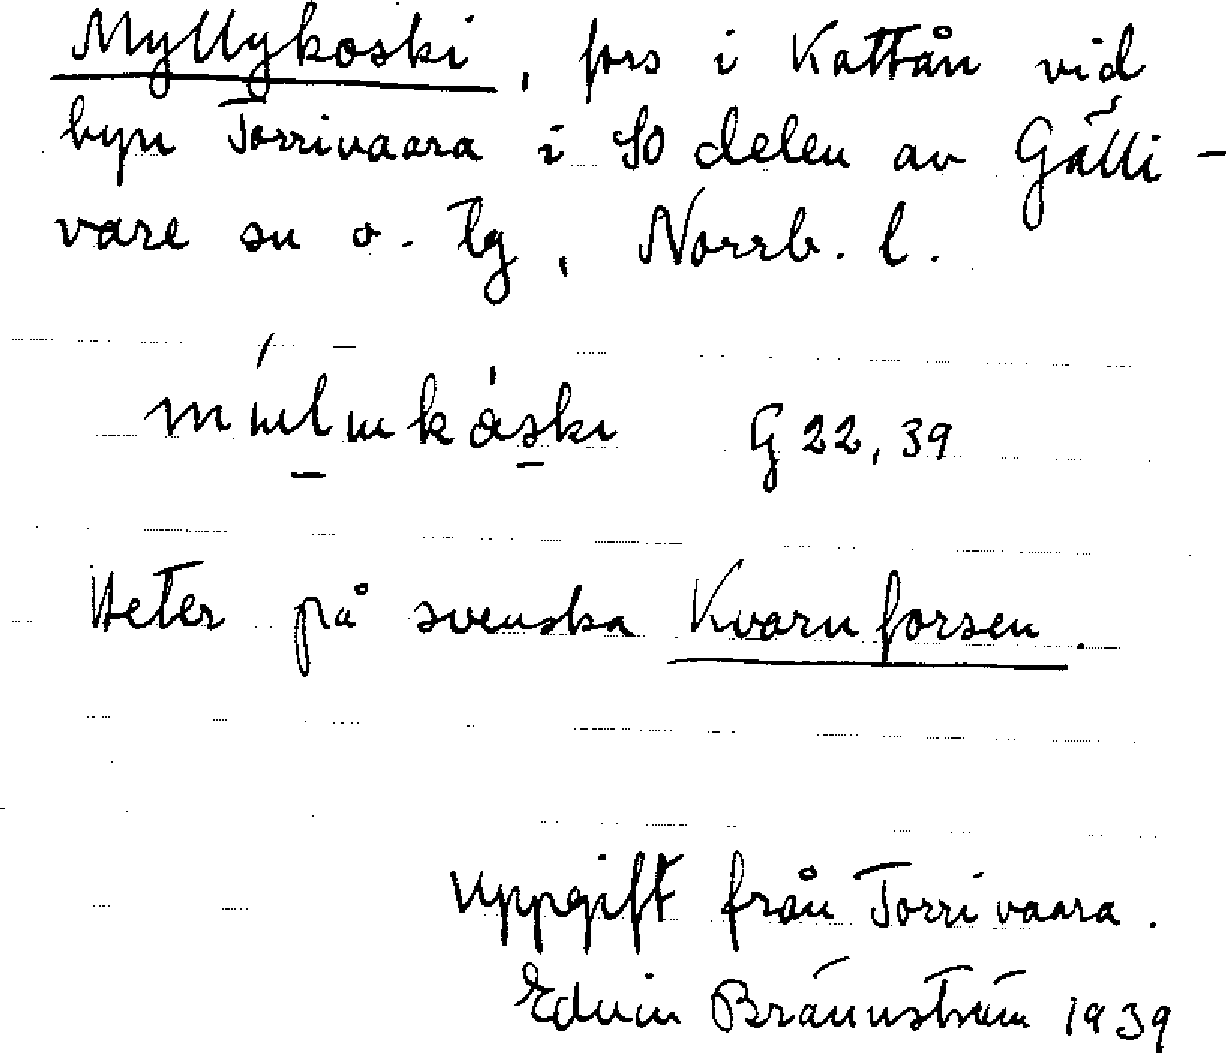 Myllykoski, fors i Kattån vid
byn Torrivaara i SO delen av Gälli-
vare sn o. tg, Norrb. l.
G 22, 39
Heter på svenska Kvarnforsen.
Uppgift från Torrivaara.
Edvin Brännström 1939